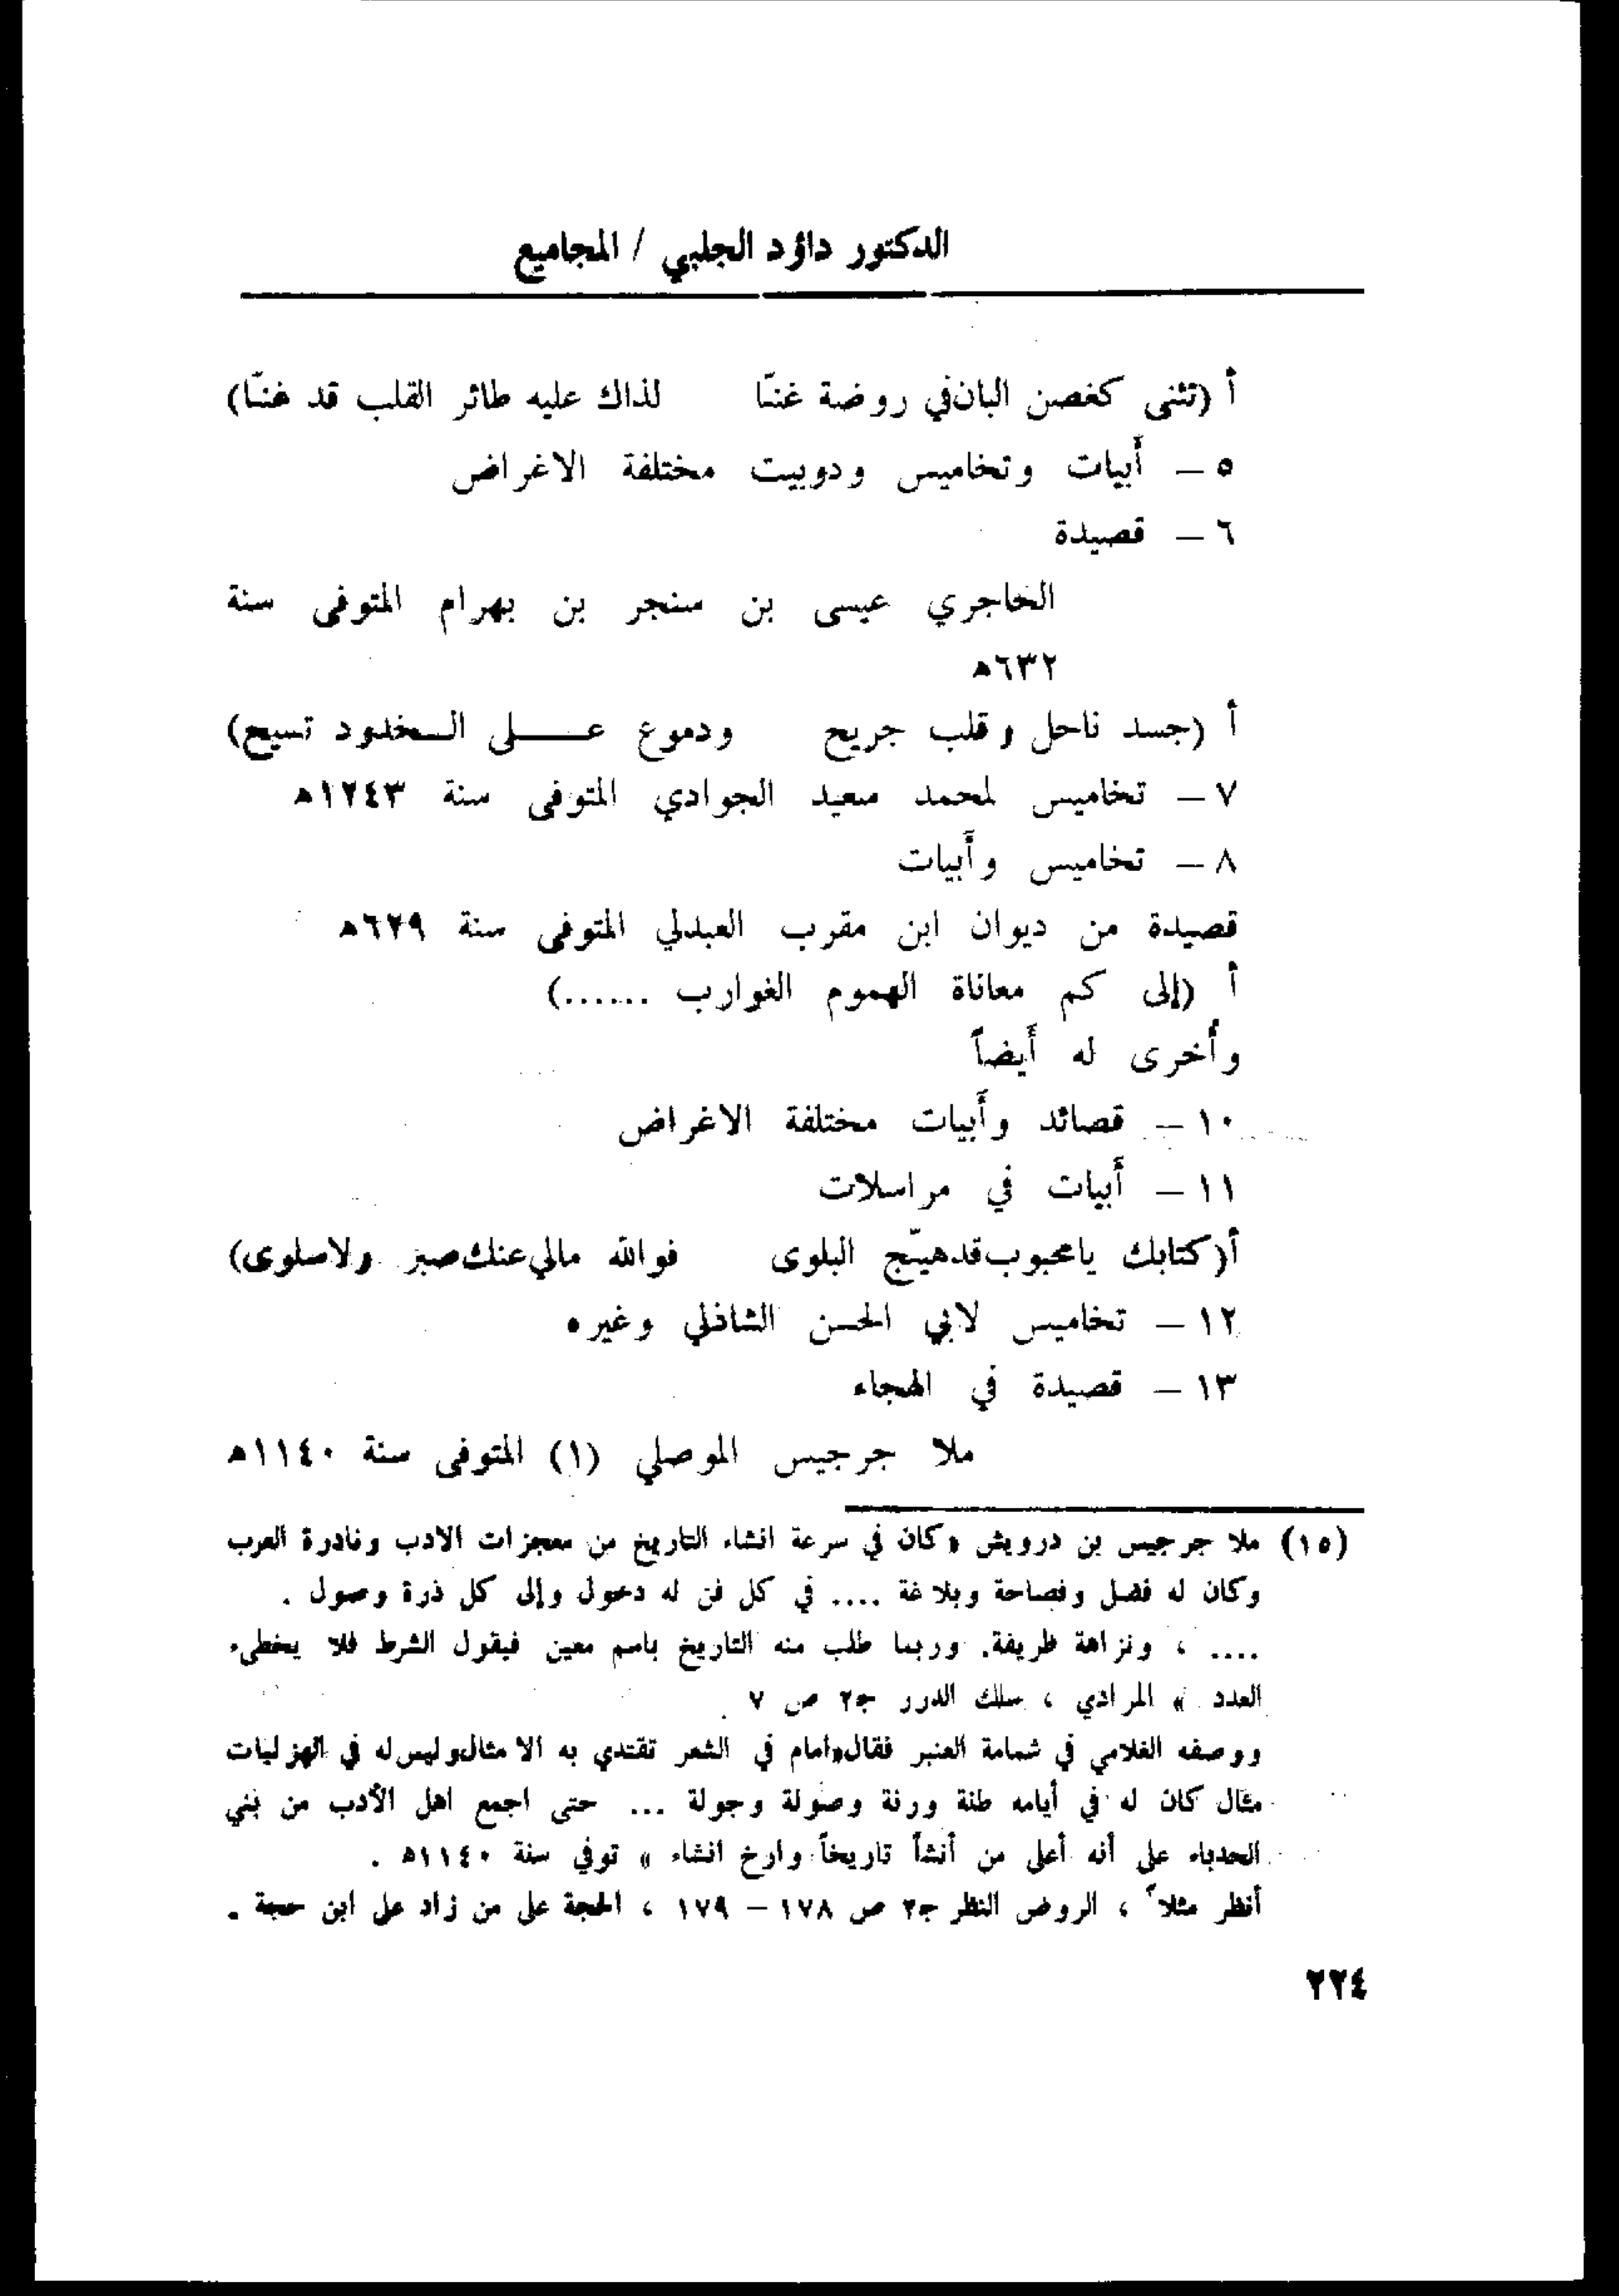 الدكتور داؤد الجلبي / المجاميع
أ (تثنى كغصن البان في روضة غنّا لذاك عليه طائر القلب قد غنّا)
٥ – أبيات وتخاميس ودوبيت مختلفة الاغراض
٦ – قصيدة
الحاجري عيسى بن سنجر بن بهرام المتوفى سنة
٦٣٢ه
أ (جسد ناحل وقلب جريح ودموع عـــلى الـخدود تسيح)
٧ – تخاميس لمحمد سعيد الجوادي المتوفى سنة ١٢٤٣ه
٨ – تخاميس وأبيات
قصيدة من ديوان ابن مقرب العبدلي المتوفى سنة ٦٢٩ه
أ (إلى كم معاناة الهموم الغوارب ......)
وأخرى له أيضاً
١٠ – قصائد وأبيات مختلفة الاغراض
١١ – أبيات في مراسلات
أ(كتابك يامحبوب قدهيّج البلوى فوالله مالي عنك صبر ولاسلوى)
١٢ – تخاميس لابي الحسن الشاذلي وغيره
١٣ – قصيدة في الهجاء
ملا جرجيس الموصلي (١) المتوفى سنة ١١٤٠ه
(١٥) ملا جرجيس بن درويش «كان في سرعة انشاء التاريخ من معجزات الادب ونادرة العرب
وكان له فضل وفصاحة وبلاغة .... في كل فن له دخول وإلى كل ذرة وصول .
.... ، ونزاهة ظريفة. وربما طلب منه التاريخ باسم معين فيقول الشرط فلا يخطىء
العدد » المرادي ، سلك الدرر ج٢ ص ٧ .
ووصفه الغلامي في شمامة العنبر فقال«امام في الشعر تقتدي به الامثال وليس له في الهزليات
مثال كان له في أيامه طنة ورنة وصولة وجولة ... حتى اجمع اهل الأدب من بني
الحدباء على أنه أعلى من أنشأ تاريخاً وارخ انشاء » توفي سنة ١١٤٠ه .
أنظر مثلاً ، الروض النظر ج٢ ص ١٧٨ – ١٧٩ ، الحجة على من زاد على ابن حجة .
٢٢٤